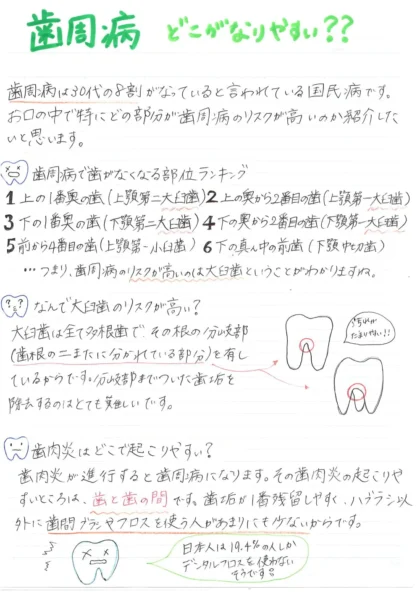 歯周病 どこがなりやすい??
歯周病は30代の8割がなっていると言われている国民病です。
お口の中で特にどの部分が歯周病のリスクが高いのか紹介した
いと思います。
歯周病で歯がなくなる部位ランキング
1 上の1番奥の歯(上顎第二大臼歯) 2 上の奥から2番目の歯(上顎第一大臼歯)
3 下の1番奥の歯(下顎第二大臼歯) 4 下の奥から2番目の歯(下顎第一大臼歯)
5 前から4番目の歯(上顎第一小臼歯) 6 下の真ん中の前歯(下顎中切歯)
…つまり、歯周病のリスクが高いのは大臼歯ということがわかりますね。
なんで大臼歯のリスクが高い?
大臼歯は全て多根歯で、その根の分岐部
(歯根の二またに分かれている部分)を有し
ているからです。分岐部までついた歯垢を
除去するのはとても難しいです。
汚れが
たまりやすい!!
歯肉炎はどこで起こりやすい?
歯肉炎が進行すると歯周病になります。その歯肉炎の起こりや
すいところは、歯と歯の間です。歯垢が1番残留しやすく、ハブラシ以
外に歯間ブラシやフロスを使う人があまりにも少ないからです。
日本人は19.4%の人しか
デンタルフロスを使わない
そうです